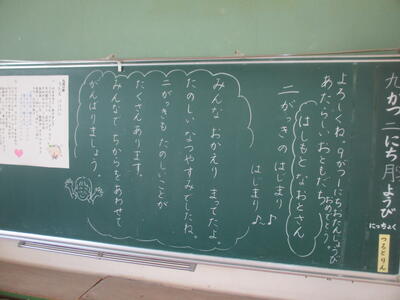 九がつ二にち月ようび
にっちょく
つるとりん
よろしくね。9がつ1にちおたんじょうび
おめでとう
あたらしいおともだち
はしもと なおとさん
二がっきの はじまり
はじまり
みんな おかえり まってたよ。
たのしい なつやすみでしたね。
二がっきも たのしいことが
たくさんあります。
みんなで ちからをあわせて
がんばりましょう。